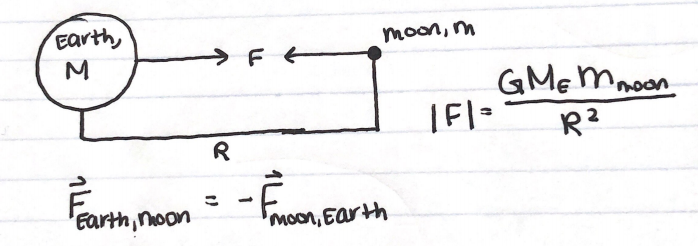 Earth, M
F
moon, m
R
|F| = GM_E m_moon / R²
F⃗_Earth,moon = -F⃗_moon,Earth